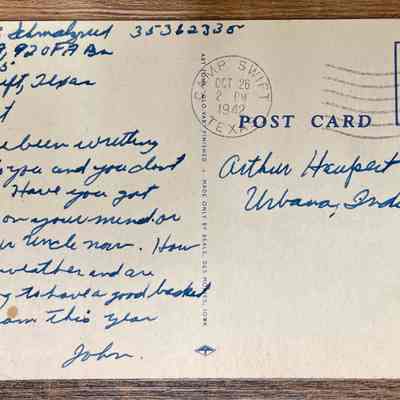 Schmalzried 35362336
, 920 FA Bn
ft, Texas
been writing
you and you dont
Have you got
on your mind or
r Uncle now. How
weather and are
g to have a good basket
am this year
John.
ART-TONE GLO-VAR FINISHED
MADE ONLY BY BEALS, DES MOINES, IOWA
CAMP SWIFT
OCT 26
2 PM
1942
TEXAS
POST CARD
Arthur Haupert
Urbana, Indi